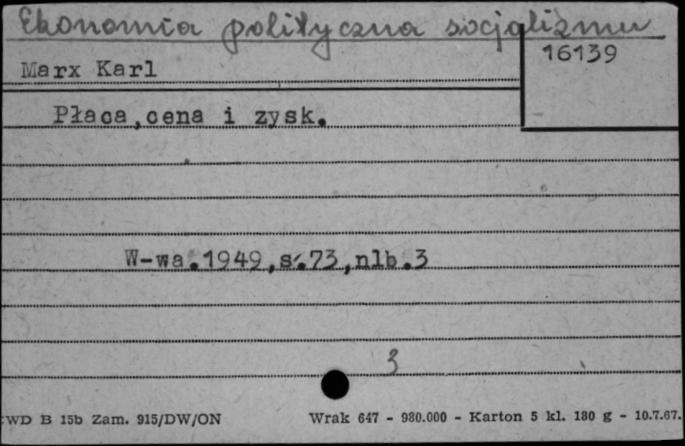 Ekonomia polityczna socjalizmu
16139
Marx Karl
Płaca,cena i zysk.
W-wa.1949,s.73,nlb.3
3
WD B 15b Zam. 915/DW/ON Wrak 647 - 980.000 - Karton 5 kl. 180 g - 10.7.67.